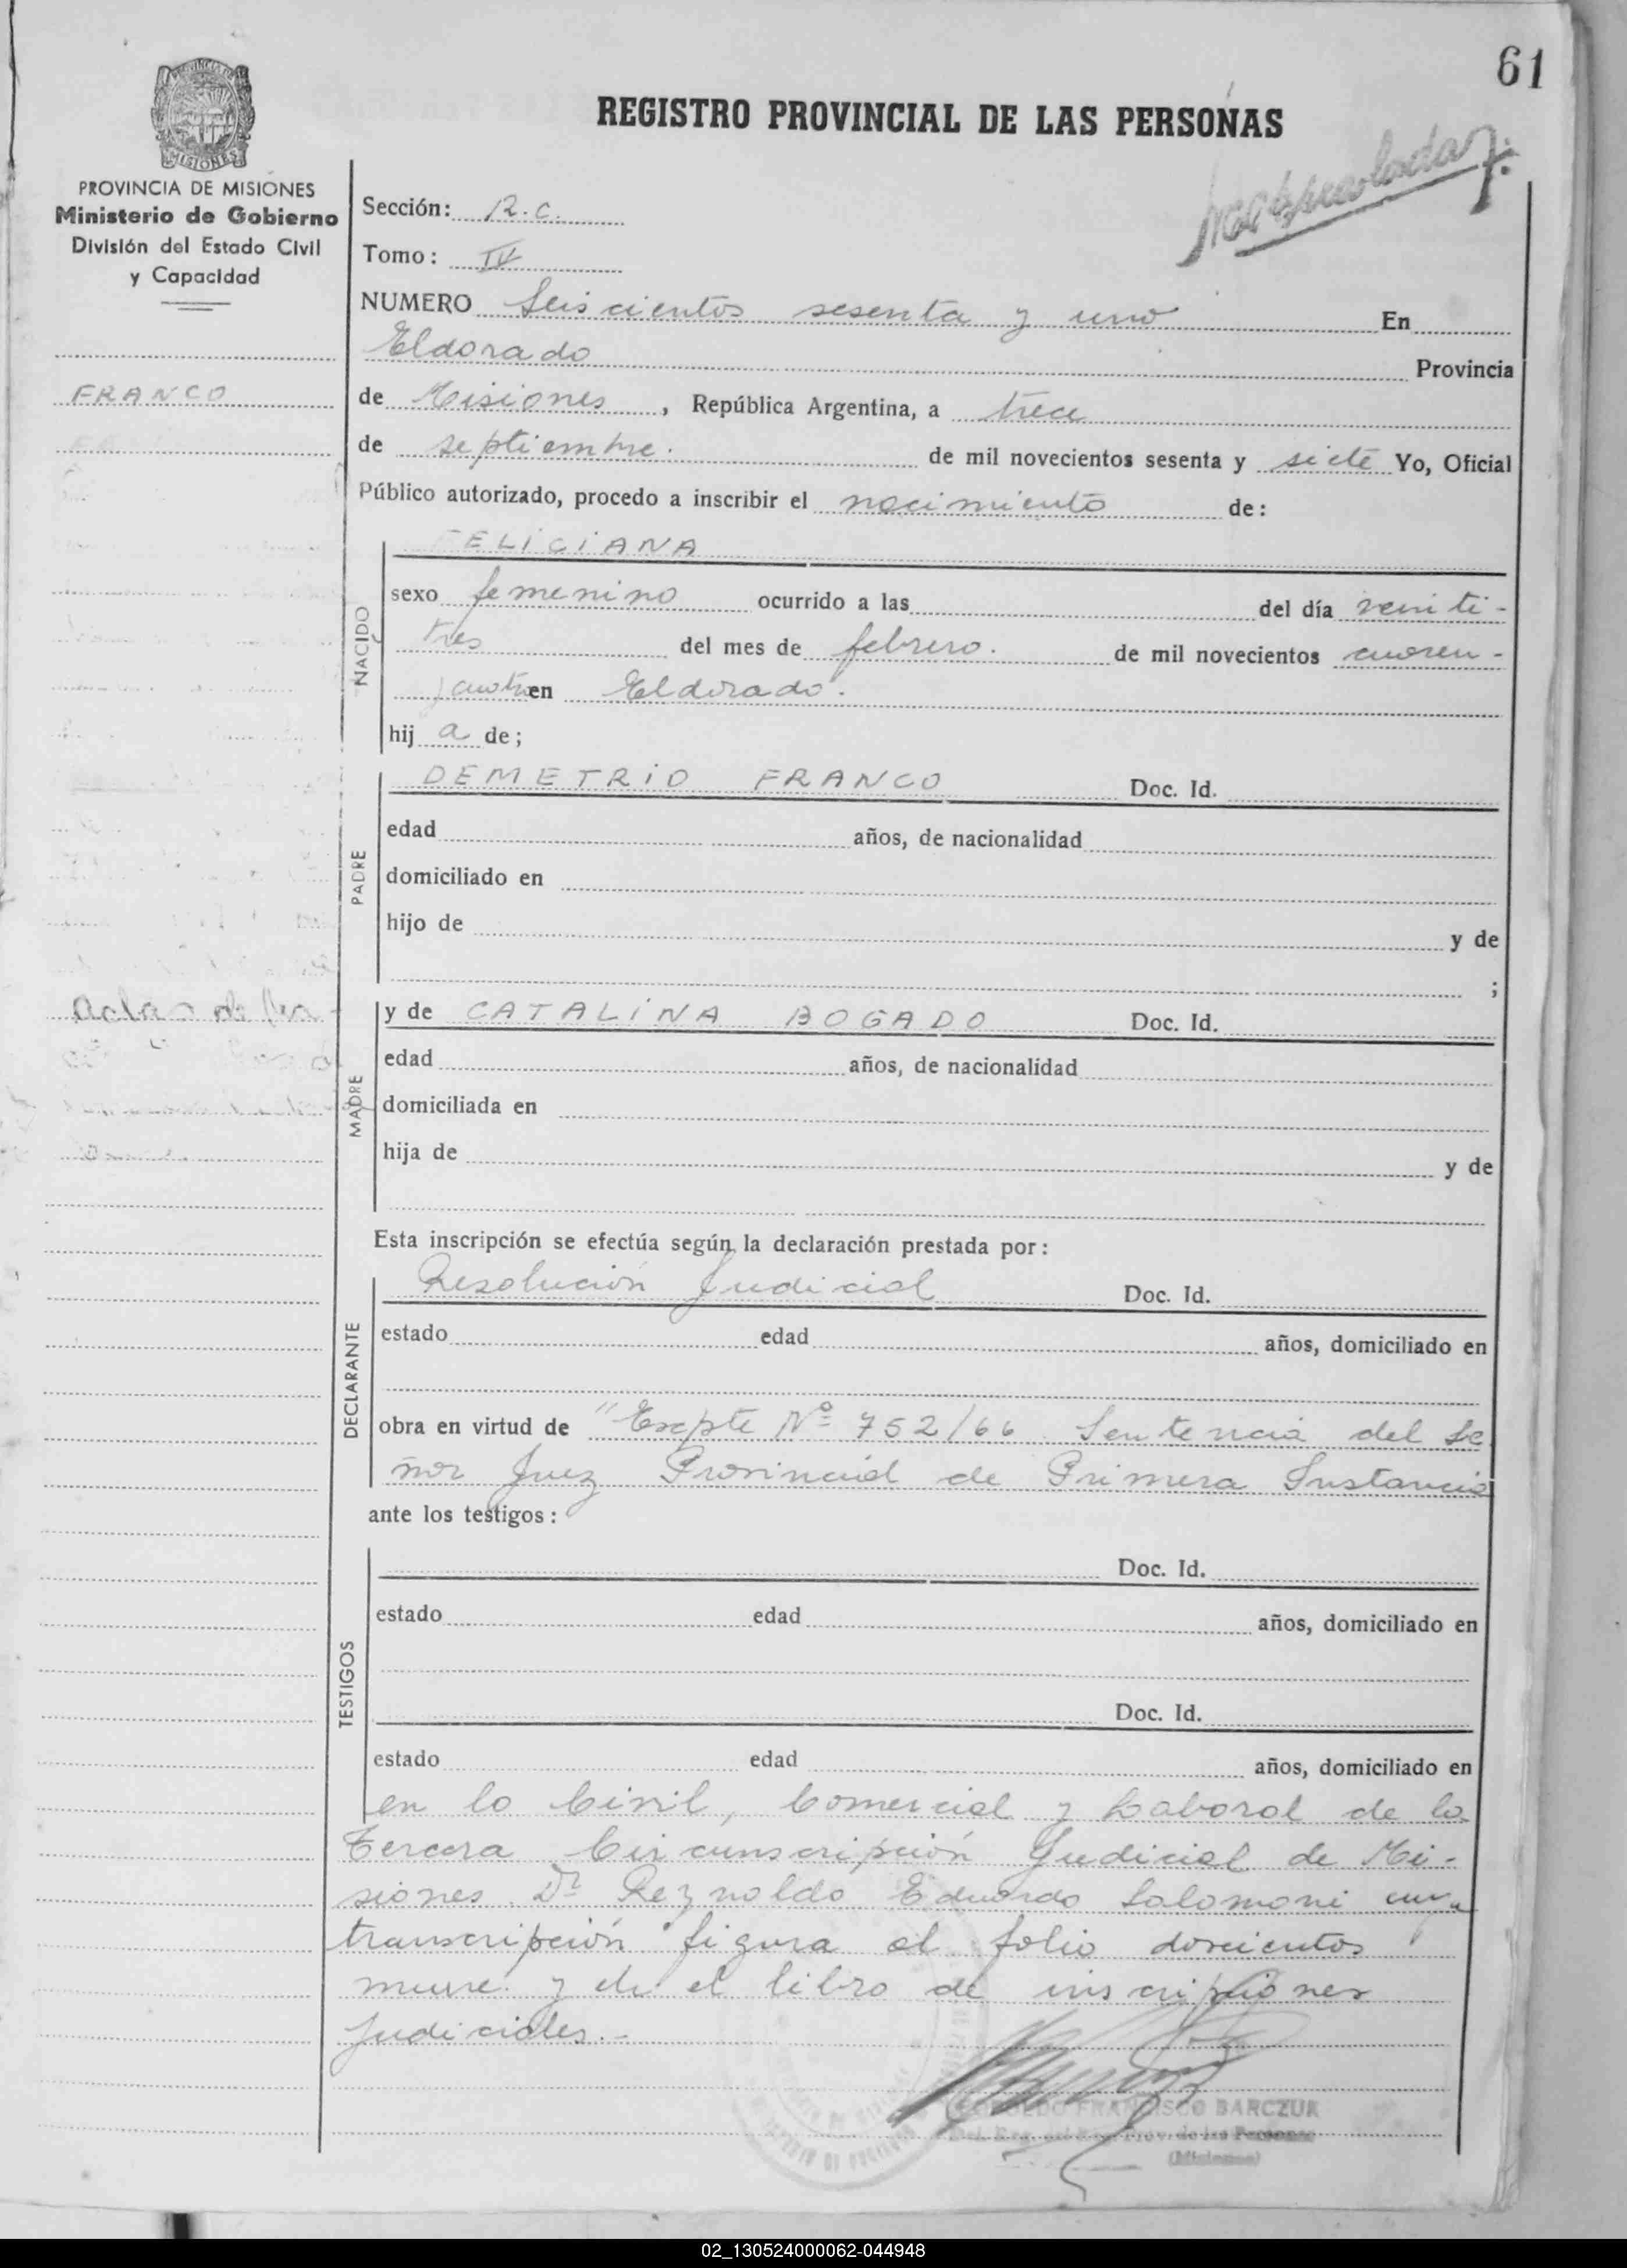 61
REGISTRO PROVINCIAL DE LAS PERSONAS
MISIONES
PROVINCIA DE MISIONES
Ministerio de Gobierno
División del Estado Civil
y Capacidad
FRANCO
Sección: R.C.
Tomo: IV
NUMERO Seiscientos sesenta y uno En
Eldorado Provincia
de Misiones, República Argentina, a trece
de septiembre. de mil novecientos sesenta y siete Yo, Oficial
Público autorizado, procedo a inscribir el nacimiento de:
FELICIANA
NACIDO
sexo femenino ocurrido a las del día veinti-
tres del mes de febrero. de mil novecientos cuaren-
cuatro en Eldorado.
hij a de;
PADRE
DEMETRIO FRANCO Doc. Id.
edad años, de nacionalidad
domiciliado en
hijo de y de
;
MADRE
y de CATALINA BOGADO Doc. Id.
edad años, de nacionalidad
domiciliada en
hija de y de
Esta inscripción se efectúa según la declaración prestada por:
DECLARANTE
Resolución Judicial Doc. Id.
estado edad años, domiciliado en
obra en virtud de "Expte Nº 752/66 Sentencia del Se
ñor Juez Provincial de Primera Instancia
ante los testigos:
TESTIGOS
Doc. Id.
estado edad años, domiciliado en
Doc. Id.
estado edad años, domiciliado en
en lo Civil, Comercial y Laboral de la
Tercera Circunscripción Judicial de Mi-
siones Dr Reynoldo Eduardo Salomoni cuya
transcripción figura al folio doscientos
nueve y en el libro de inscripciones
Judiciales.-
FRANCISCO BARCZUK
Prov. de las Personas
(Misiones)
02_130524000062-044948